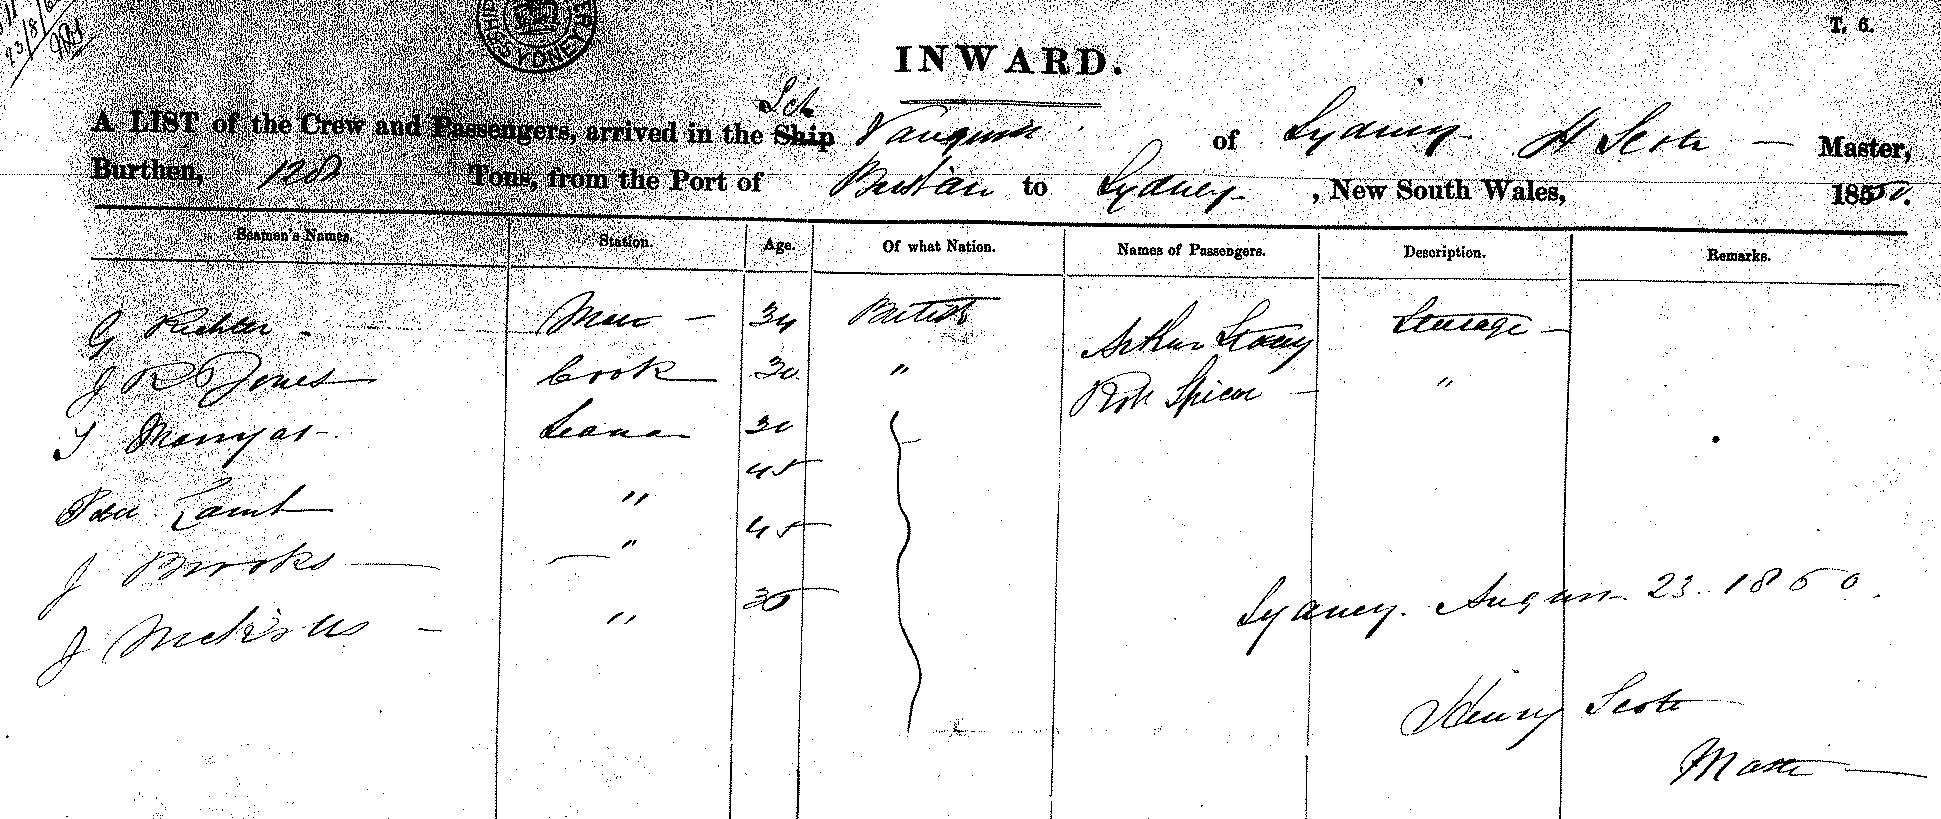 T. 6.
INWARD.
Sch
A LIST of the Crew and Passengers, arrived in the Ship of Sydney H Scott Master,
Burthen, 128 Tons, from the Port of to Sydney, New South Wales, 185
Seamen's Names. Station. Age. Of what Nation. Names of Passengers. Description. Remarks.
G Richter Mate 34 British Arthur Stacey Steerage
J R Jones Cook 30 " Rob Spicer "
Seaman 30
Lamb " 45
J Brooks " 45
J "
Sydney. August 23. 1860.
Henry Scott
Master